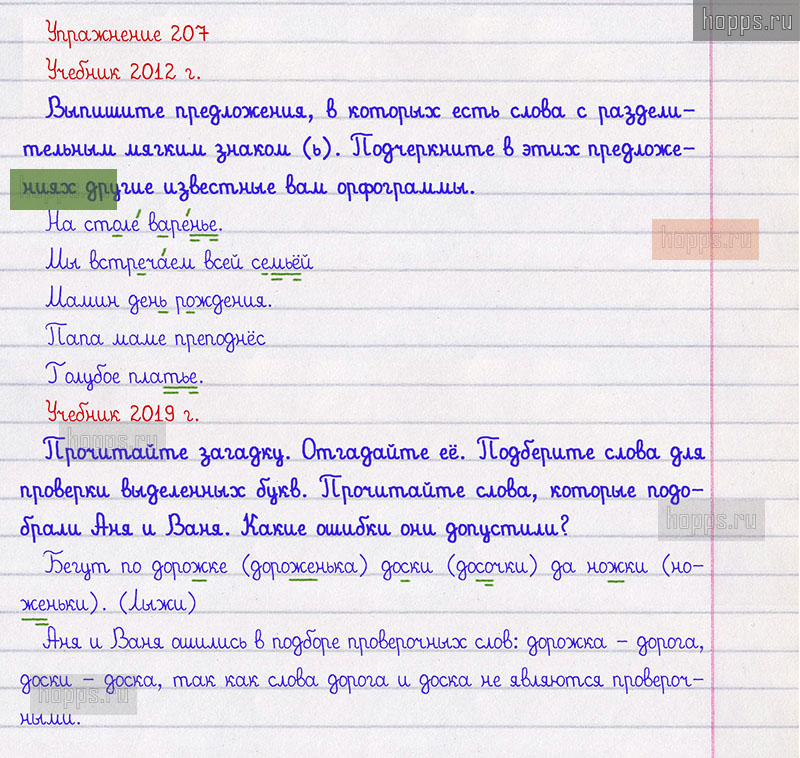 hopps.ru
Упражнение 207
Учебник 2012 г.
Выпишите предложения, в которых есть слова с раздели-
тельным мягким знаком (ь). Подчеркните в этих предложе-
ниях другие известные вам орфограммы.
На столе́ варе́нье.
hopps.ru
Мы встреча́ем всей семьёй
Мамин день рождения.
Папа маме преподнёс
Голубое платье.
Учебник 2019 г.
hopps.ru
Прочитайте загадку. Отгадайте её. Подберите слова для
проверки выделенных букв. Прочитайте слова, которые подо-
hopps.ru
брали Аня и Ваня. Какие ошибки они допустили?
Бегут по дорожке (дороженька) доски (досочки) да ножки (но-
женьки). (Лыжи)
Аня и Ваня ошиблись в подборе проверочных слов: дорожка – дорога,
доски – доска, так как слова дорога и доска не являются провероч-
hopps.ru
ными.